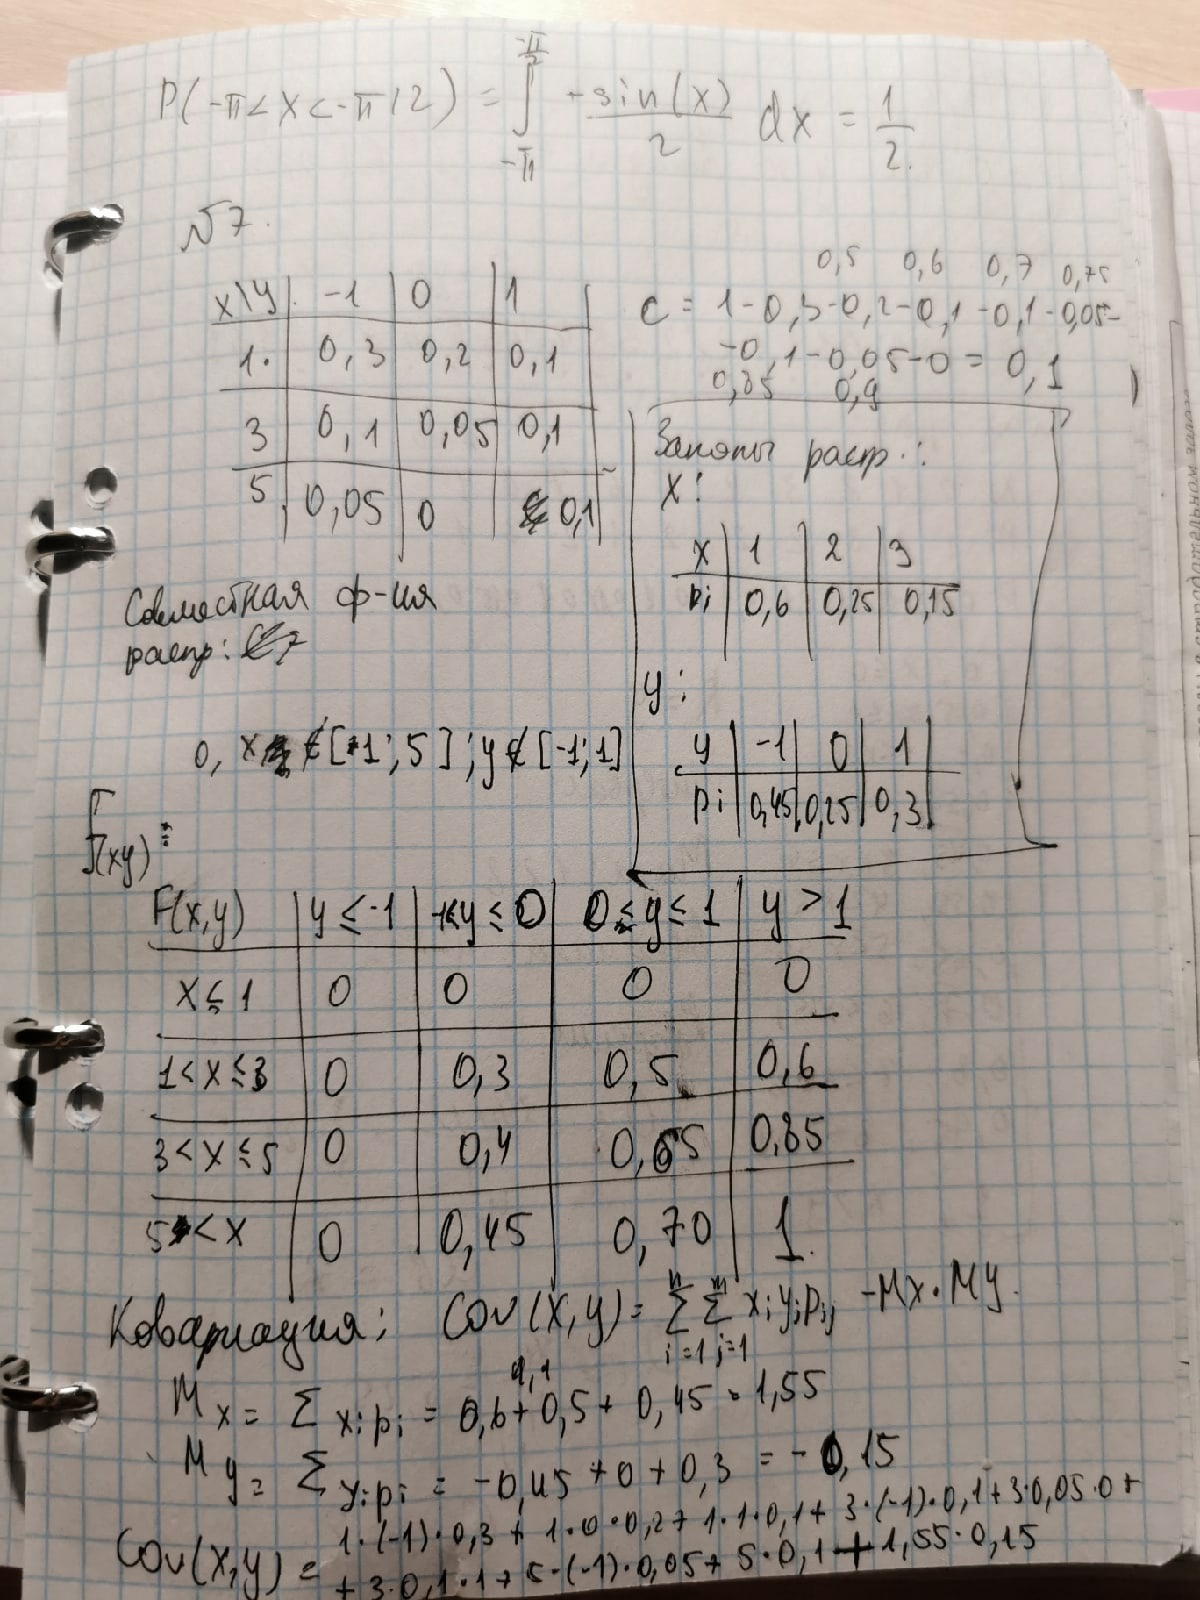 P(-π < x < -π/2) = ∫_{-π}^{-π/2} -sin(x)/2 dx = 1/2.
№7.
x\y | -1 | 0 | 1
1. | 0,3 | 0,2 | 0,1
3 | 0,1 | 0,05 | 0,1
5 | 0,05 | 0 | 0,1
0,5 0,6 0,7 0,75
c = 1-0,3-0,2-0,1-0,1-0,05-
-0,1-0,05-0 = 0,1
0,85 0,9
Законы распр.:
X:
x | 1 | 2 | 3
pi | 0,6 | 0,25 | 0,15
y:
y | -1 | 0 | 1
pi | 0,45 | 0,25 | 0,3
Совместная ф-ия
распр:
0, x ∉ [1; 5]; y ∉ [-1; 1]
F(xy) =
F(x,y) | y ≤ -1 | -1< y ≤ 0 | 0 < y ≤ 1 | y > 1
x ≤ 1 | 0 | 0 | 0 | 0
1 < x ≤ 3 | 0 | 0,3 | 0,5 | 0,6
3 < x ≤ 5 | 0 | 0,4 | 0,65 | 0,85
5 < x | 0 | 0,45 | 0,70 | 1.
Ковариация: Cov(x,y) = ∑_{i=1}^{n} ∑_{j=1}^{m} xiyjpij - Mx·My.
1,1
Mx = ∑ xipi = 0,6 + 0,5 + 0,45 = 1,55
My = ∑ yipi = -0,45 + 0 + 0,3 = -0,15
Cov(x,y) = 1·(-1)·0,3 + 1·0·0,2 + 1·1·0,1 + 3·(-1)·0,1 + 3·0,05·0 +
+ 3·0,1·1 + 5·(-1)·0,05 + 5·0,1 + 1,55·0,15